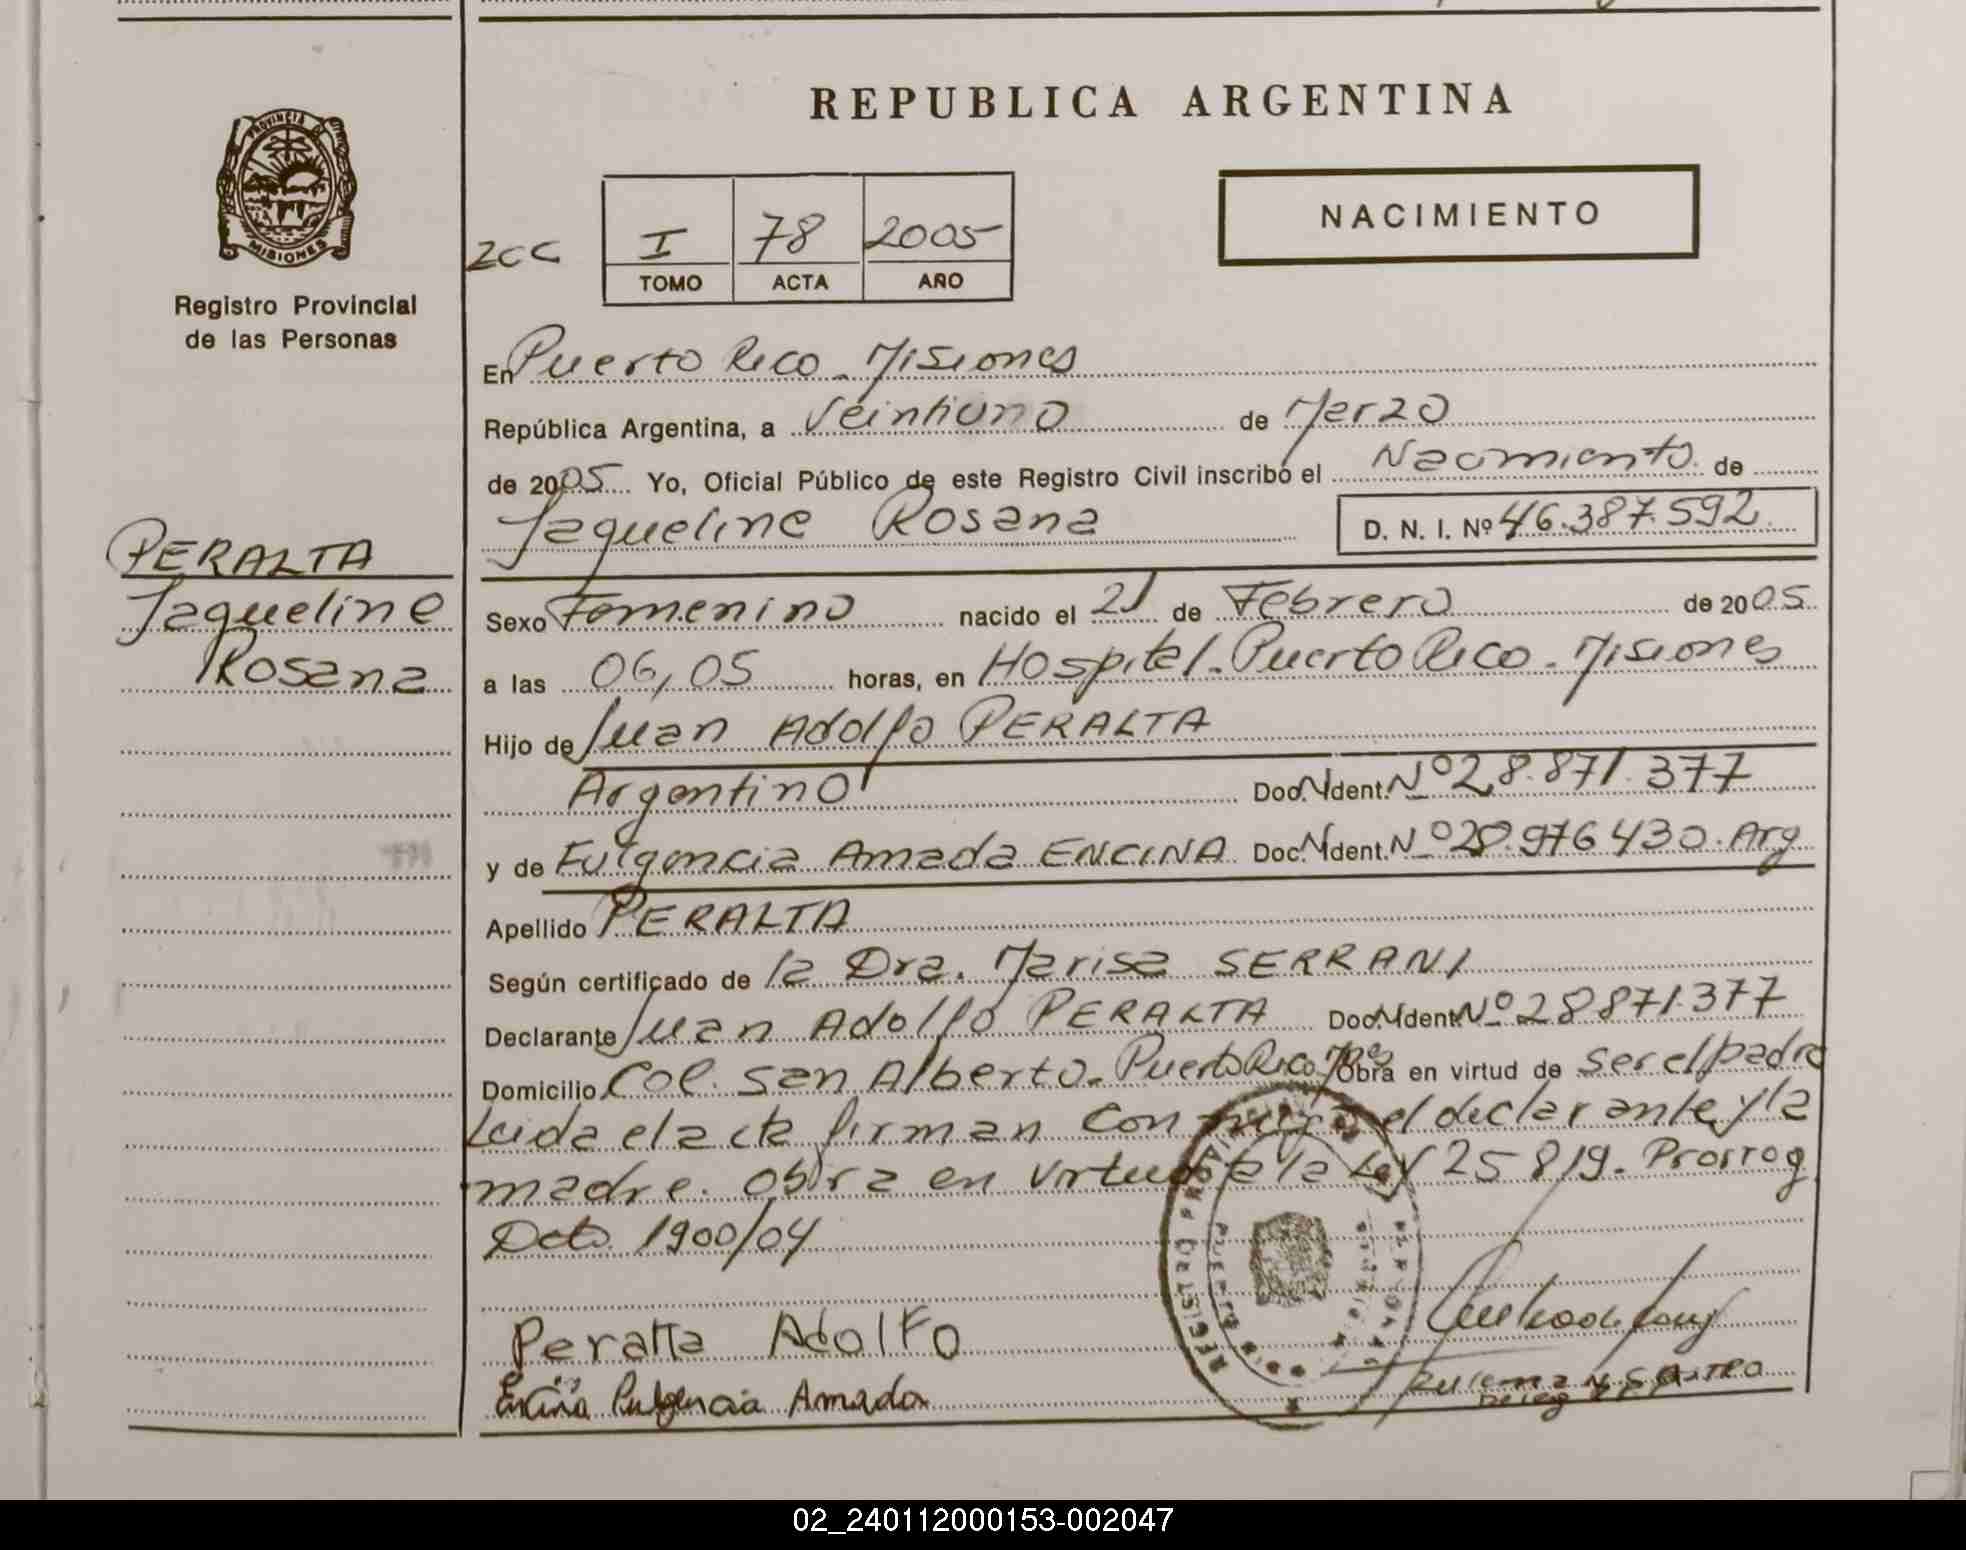 REPUBLICA ARGENTINA
PROVINCIA DE
MISIONES
Registro Provincial
de las Personas
NACIMIENTO
ZCC
I 78 2005
TOMO ACTA AÑO
En Puerto Rico - Misiones
República Argentina, a Veintiuno de Marzo
de 2005 Yo, Oficial Público de este Registro Civil inscribo el Nacimiento de
Jaqueline Rosana D. N. I. Nº 46.387.592
PERALTA
Jaqueline
Rosana
Sexo Femenino nacido el 21 de Febrero de 2005
a las 06,05 horas, en Hospital - Puerto Rico - Misiones
Hijo de Juan Adolfo PERALTA
Argentino Doc. N Ident. Nº 28.871.377
y de Fulgencia Amada ENCINA Doc. N Ident. Nº 976430. Arg
Apellido PERALTA
Según certificado de la Dra. Marisa SERRANI
Declarante Juan Adolfo PERALTA Doc. N Ident. Nº 28871.377
Domicilio Col. San Alberto - Puerto Rico Mnes Obra en virtud de ser el padre
Leida el acta firman con migo el declarante y la
madre. Obra en virtud de la Ley 25819. Prorrog
Dcto 1900/04
Peralta Adolfo
Encina Fulgencia Amada
02_240112000153-002047